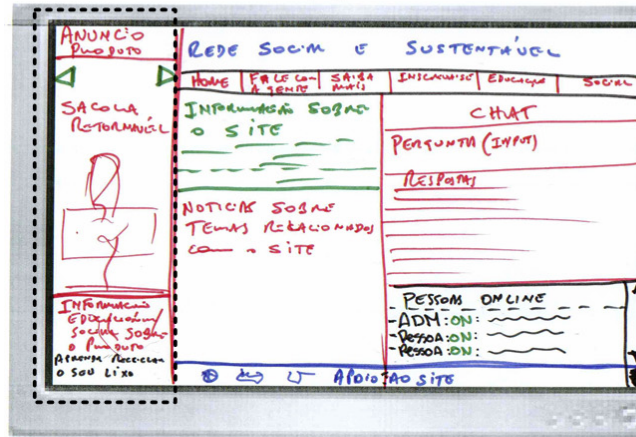 ANUNCIO
PRODUTO
SACOLA
RETORNAVÉL
INFORMACÃO
EDUCACIONAL
SOCIAL SOBRE
O PRODUTO
APRENDA RECICLAR
O SEU LIXO
REDE SOCIAL E SUSTENTÁVEL
HOME
FALE COM
A GENTE
SAIBA
MAIS
INSCREVA-SE
EDUCAÇÃO
SOCIAL
INFORMAÇÃO SOBRE
O SITE
NOTICIAS SOBRE
TEMAS RELACIONADOS
COM O SITE
CHAT
PERGUNTA (INPUT)
RESPOSTAS
PESSOAS ONLINE
-ADM:ON:
-PESSOA:ON:
-PESSOA:ON:
APOIO AO SITE